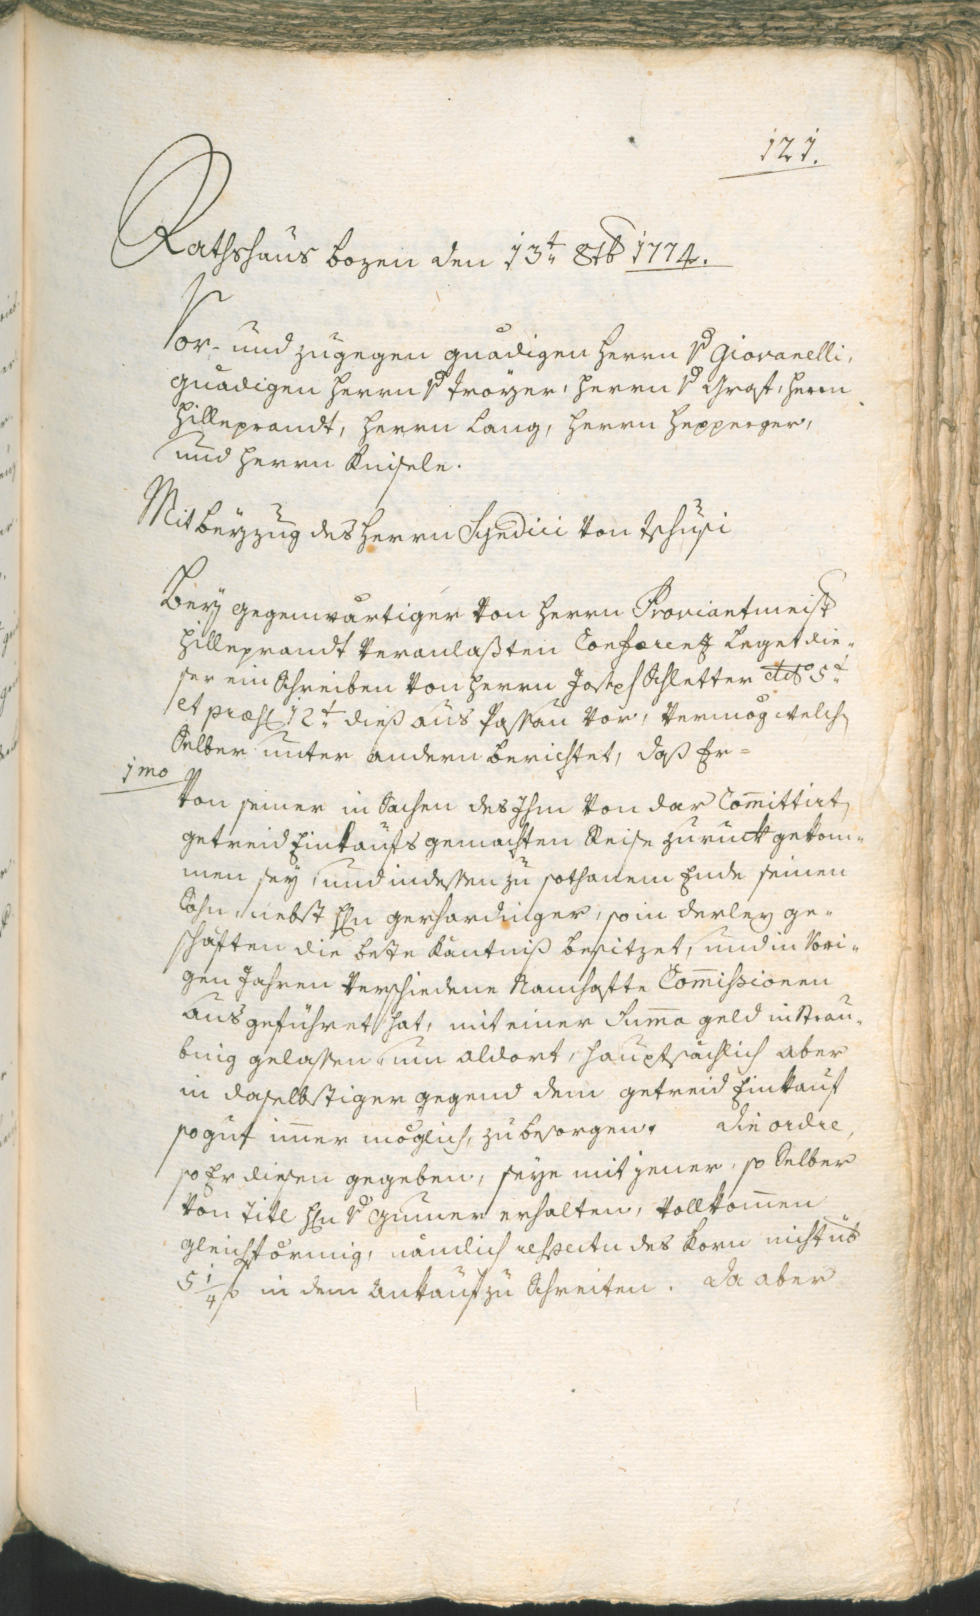 121.
Rathshaus bozen den 13t 8tb 1774.
Vor- und zugegen gnädigen Herrn Vd Giovanelli,
gnädigen Herrn Vd Troyer, Herrn Vd Graff, Herrn
Hilleprandt, Herrn Lang, Herrn Hepperger,
und Herrn Knisele.
Mit beyzug des Herrn Syndici von Tschusi
Bey gegenwärtiger von Herrn Proviantmeister
Hilleprandt veranlaßten Conferentz leget die-
ser ein Schreiben von Herrn Joseph Schletter ddo 5t
et præs 12t dieß aus Passau vor, vermög welch
Selber unter andern berichtet, daß Er-
1mo
von seiner in Sachen des Ihm von dar Com̄ittirt
getreid Einkaufs gemachten Reise zuruck gekom-
men sey, und indessen zu sothanem Ende seinen
Sohn, nebst Hn gerhardinger, so in derley ge-
schäften die beste käntniß besitzet, und in Vori-
gen Jahren verschiedene Namhafte Com̄issionen
ausgeführet hat, mit einer Sum̄a geld in Strau-
bing gelassen um aldort, hauptsächlich aber
in daselbstiger gegend dem getreid Einkauf
so gut immer möglich, zu besorgen. Die ordre,
so Er diesen gegeben, seye mit jener, so Selber
von Titl Hn Vd Gumer erhalten, vollkom̄en
gleichförmig, nämlich respectu des korn nicht üb
5 1/4 f in dem Ankauf zu Schreiten. Da aber